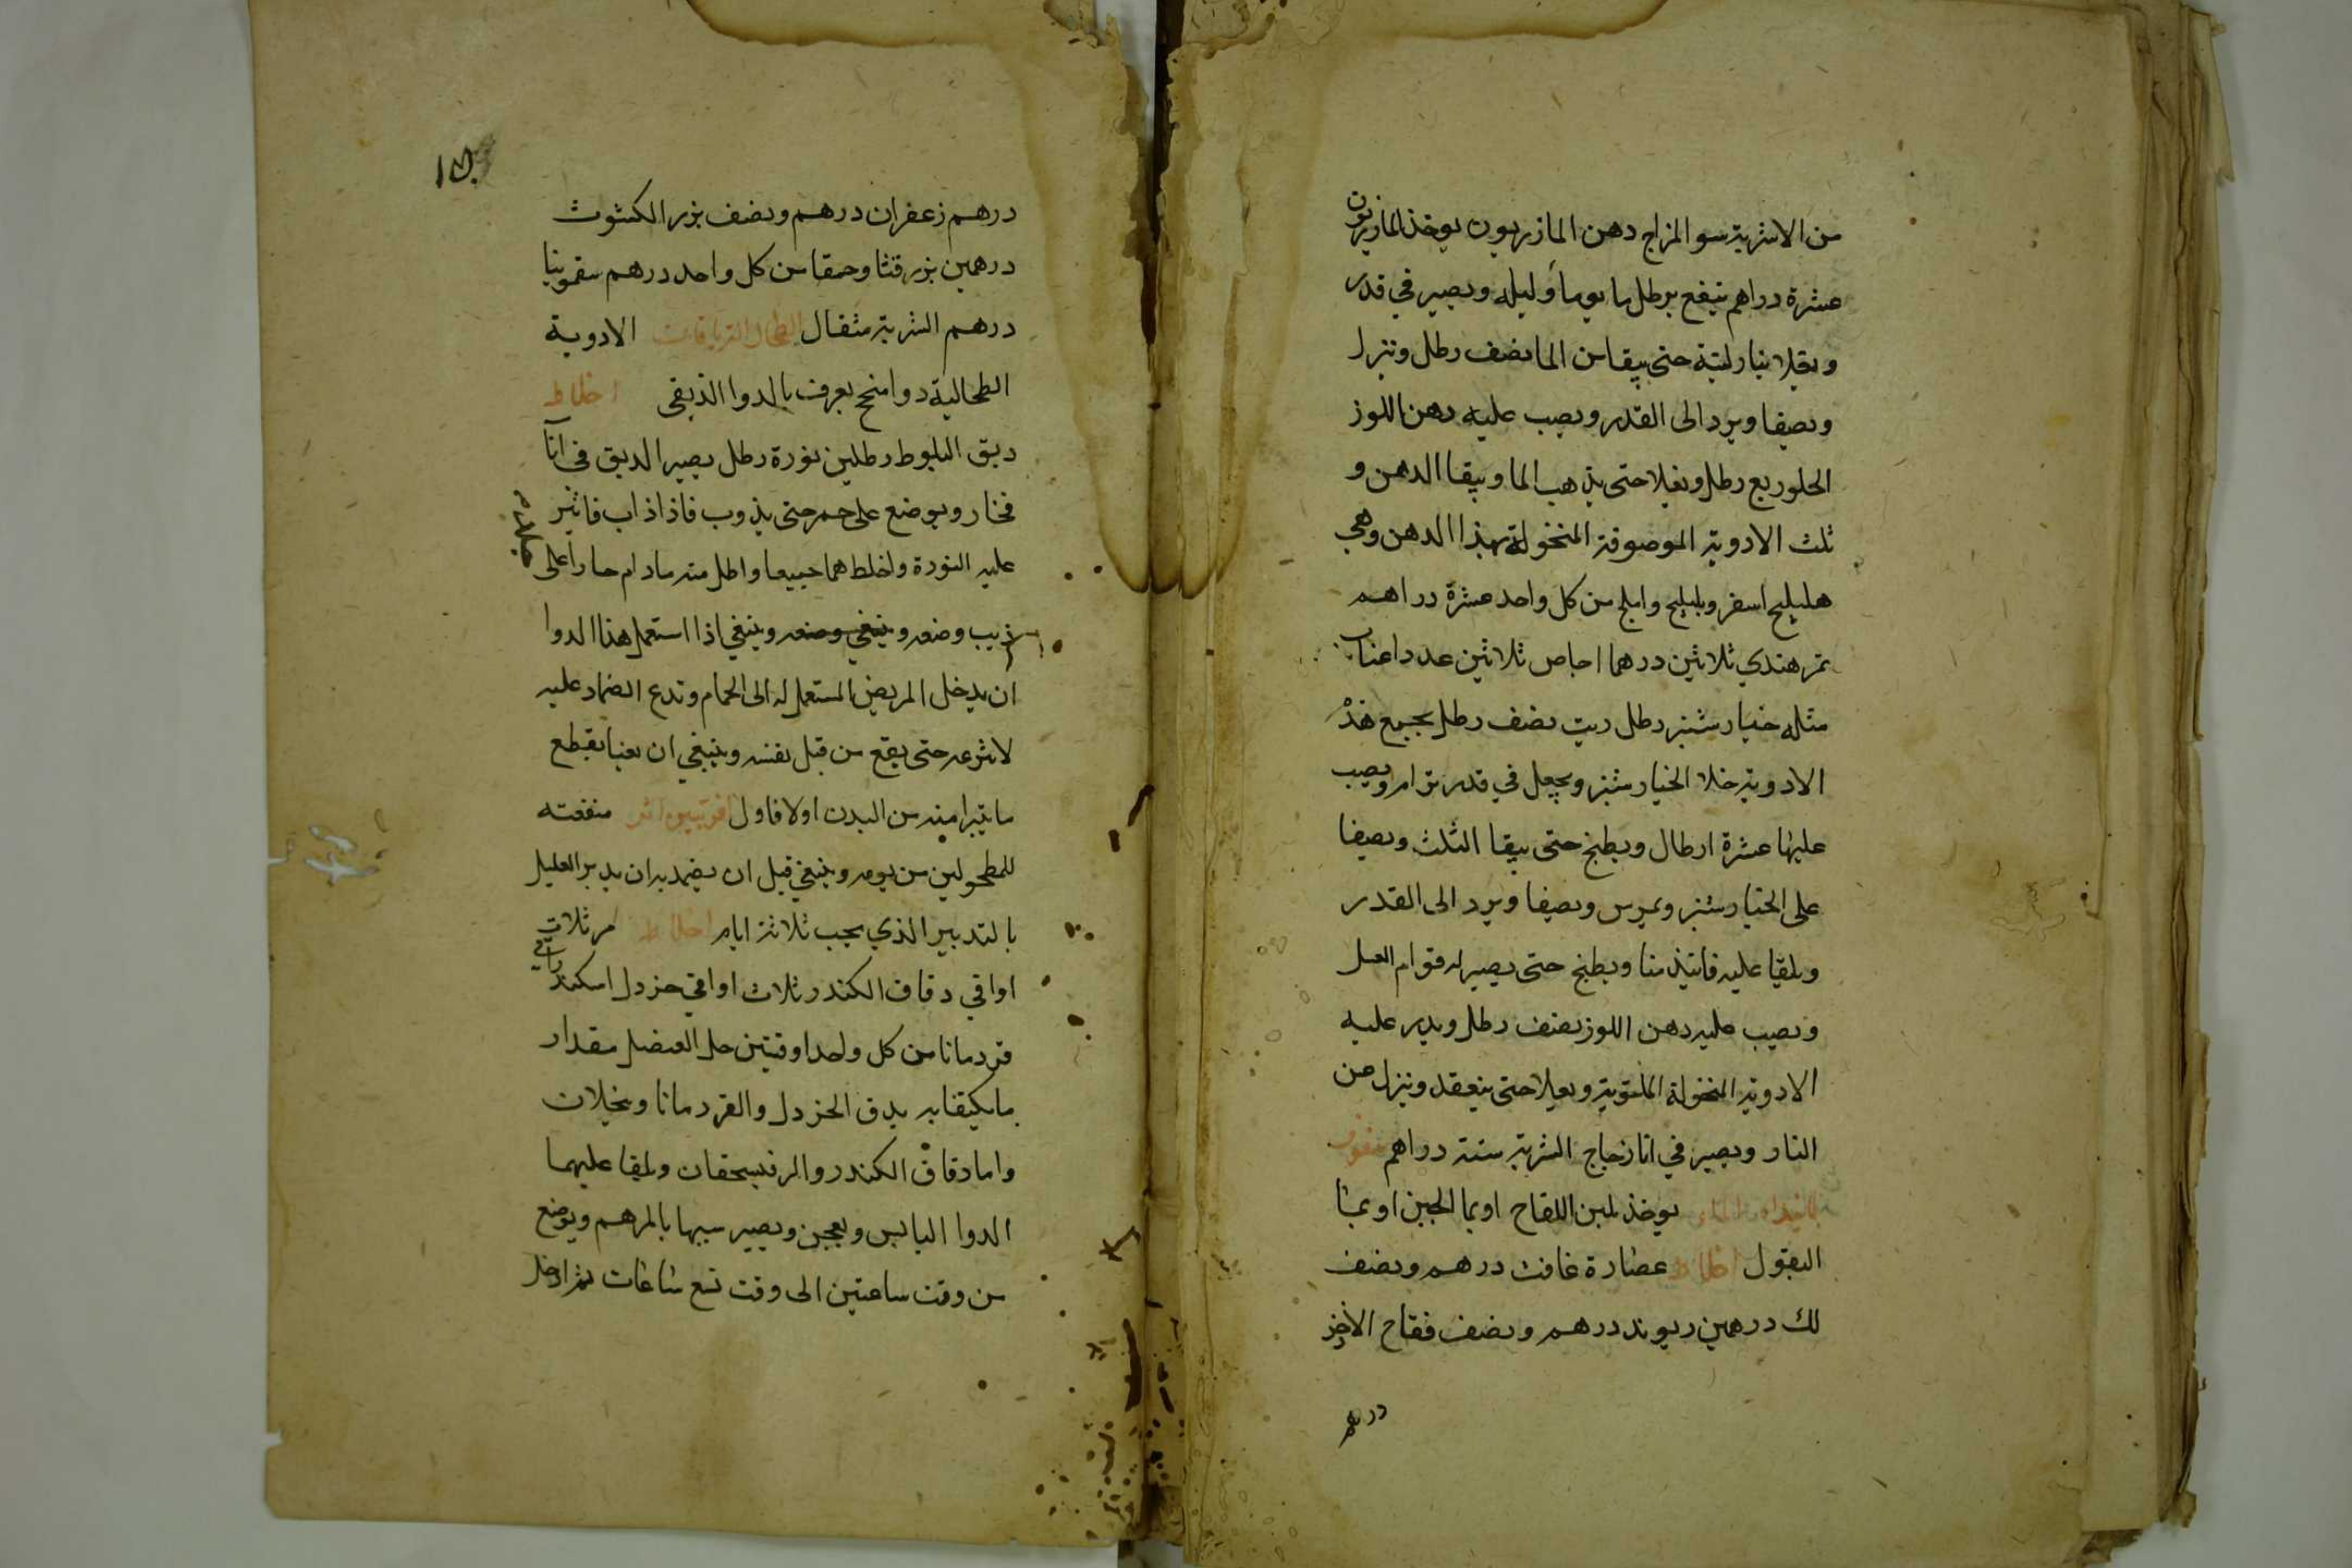 من الاشربة سو المزاج دهن المازريون يوخذ المازريون
عشرة دراهم ينقع برطل ما يوما وليله ويصير في قدر
ويقلا بنار لينة حتى يبقا من الما نصف رطل وتنزل
ويصفا ويرد الى القدر ويصب عليه دهن اللوز
الحلو ربع رطل ويغلا حتى يذهب الما ويبقا الدهن و
ثلث الادوية الموصوفة المنخولة بهذا الدهن وهي
هليليج اسفر وبليليج واملج من كل واحد عشرة دراهم
تمر هندي ثلاثين درهما اجاص ثلاثين عدد اعناب
مثله خيار شنبر رطل زيت نصف رطل يجمع هذه
الادوية خلا الخيار شنبر ويجعل في قدر برام ويصب
عليها عشرة ارطال ويطبخ حتى يبقا الثلث ويصفا
على الخيار شنبر ويمرس ويصفا ويرد الى القدر
ويلقا عليه فانيذ منا ويطبخ حتى يصير له قوام العسل
ويصب عليه دهن اللوز نصف رطل ويذر عليه
الادوية المنخولة الملتوتة ويغلا حتى ينعقد وينزل من
النار ويصير في انا زجاج الشربة ستة دراهم سفوف
يوخذ بلبن اللقاح او بما الجبن او بما
البقول اخلاط عصارة غافت درهم ونصف
لك درهمين ريوند درهم ونصف فقاح الاذخر
درهم
درهم زعفران درهم ونصف بزر الكشوث
درهمين بزر قثا وحمقا من كل واحد درهم سقمونيا
درهم الشربة مثقال الطحال الترياقات الادوية
الطحالية دوا منجح يعرف بالدوا الدبقى اخلاط
دبق البلوط رطلين نورة رطل يصير الدبق في انآ
فخار ويوضع على جمر حتى يذوب فاذا ذاب فانثر
عليه النورة واخلطهما جميعا واطل منه ما دام حارا على
وضعه وينبغي وضعه وينبغي اذا استعمل هذا الدوا
ان يدخل المريض المستعمل له الى الحمام وتدع الضماد عليه
لا تنزعه حتى يقع من قبل نفسه وينبغي ان يقطع
ما يتبرا منه من البدن اولا فاول منفعته
للمطحولين من يومه وينبغي قبل ان يضمد به ان يدبر العليل
بالتدبير الذي يجب ثلاثة ايام اخلاط مر ثلاث
اواقي دقاق الكندر ثلاث اواقي خردل اسكندراني
قردمانا من كل واحد اوقيتين خل العنصل مقدار
ما يكتفا به يدق الخردل والقردمانا وينخلان
واما دقاق الكندر والمر فيسحقان ويلقا عليهما
الدوا اليابس ويعجن ويصير شبيها بالمرهم ويوضع
من وقت ساعتين الى وقت تسع ساعات ثم ادخل